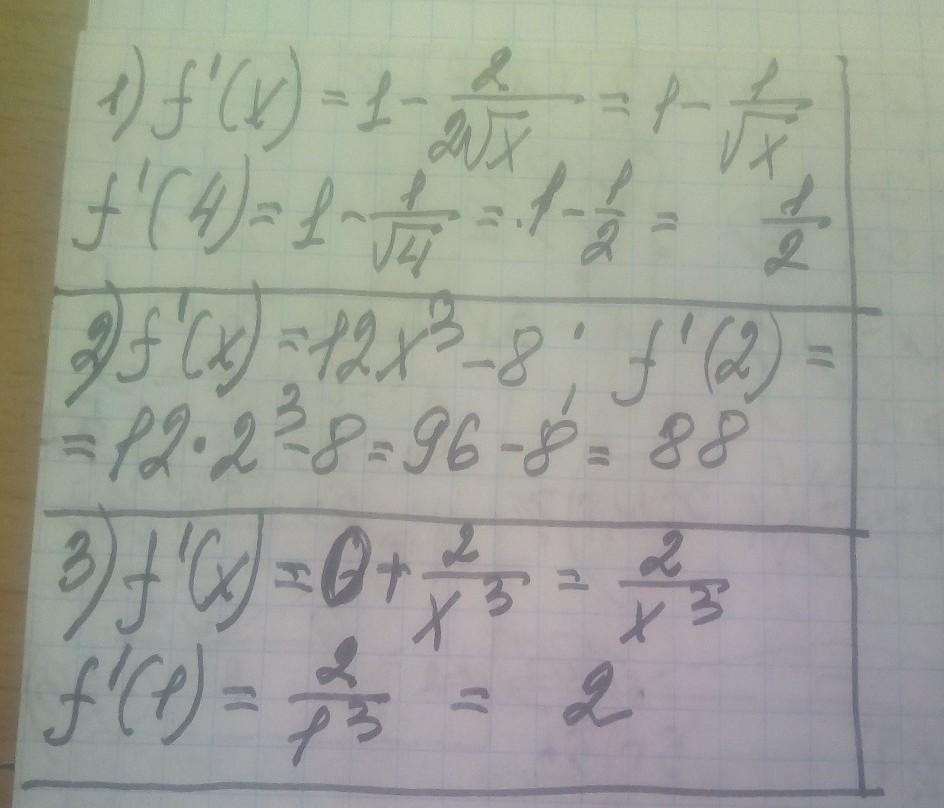 1) f'(x) = 1 - 2/(2√x) = 1 - 1/√x
f'(4) = 1 - 1/√4 = 1 - 1/2 = 1/2
2) f'(x) = 12x³ - 8; f'(2) =
= 12·2³ - 8 = 96 - 8 = 88
3) f'(x) = 0 + 2/x³ = 2/x³
f'(1) = 2/1³ = 2